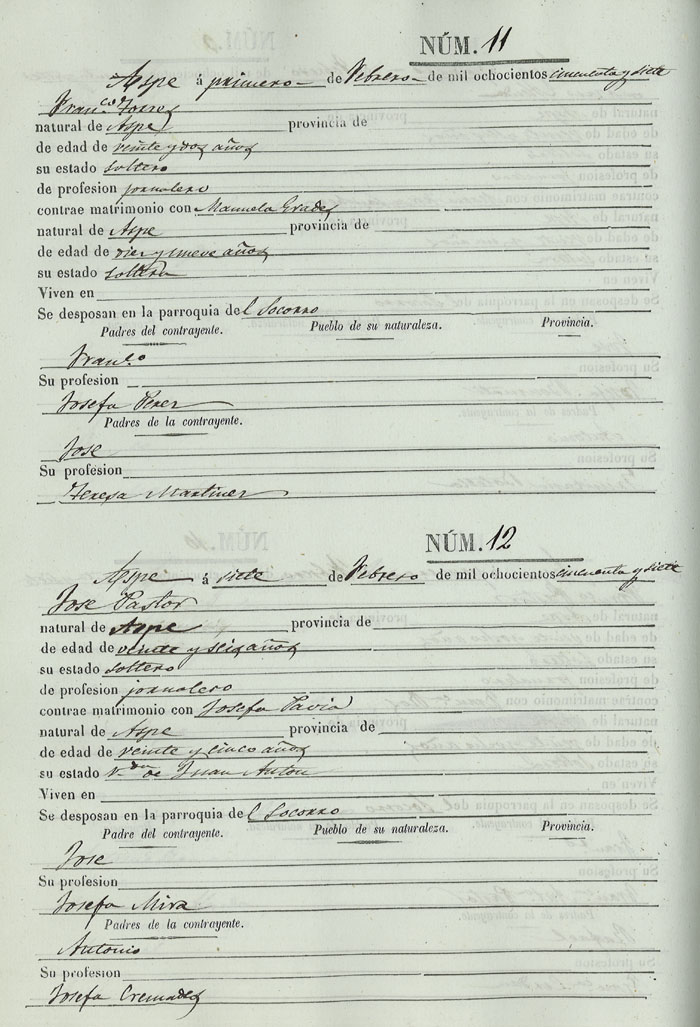 NÚM. 11
Aspe á primero de Febrero de mil ochocientos cincuenta y siete
Fran.co Torres
natural de Aspe provincia de
de edad de veinte y dos años
su estado soltero
de profesion jornalero
contrae matrimonio con Manuela
natural de Aspe provincia de
de edad de diez y nueve años
su estado soltera
Viven en
Se desposan en la parroquia del Socorro
Padres del contrayente. Pueblo de su naturaleza. Provincia.
Fran.co
Su profesion
Josefa Perez
Padres de la contrayente.
Jose
Su profesion
Teresa Martinez
NÚM. 12
Aspe á siete de Febrero de mil ochocientos cincuenta y siete
Jose Pastor
natural de Aspe provincia de
de edad de veinte y seis años
su estado soltero
de profesion jornalero
contrae matrimonio con Josefa Pavia
natural de Aspe provincia de
de edad de veinte y cinco años
su estado V.da de Juan Anton
Viven en
Se desposan en la parroquia del Socorro
Padre del contrayente. Pueblo de su naturaleza. Provincia.
Jose
Su profesion
Josefa Mira
Padres de la contrayente.
Antonio
Su profesion
Josefa Cremades